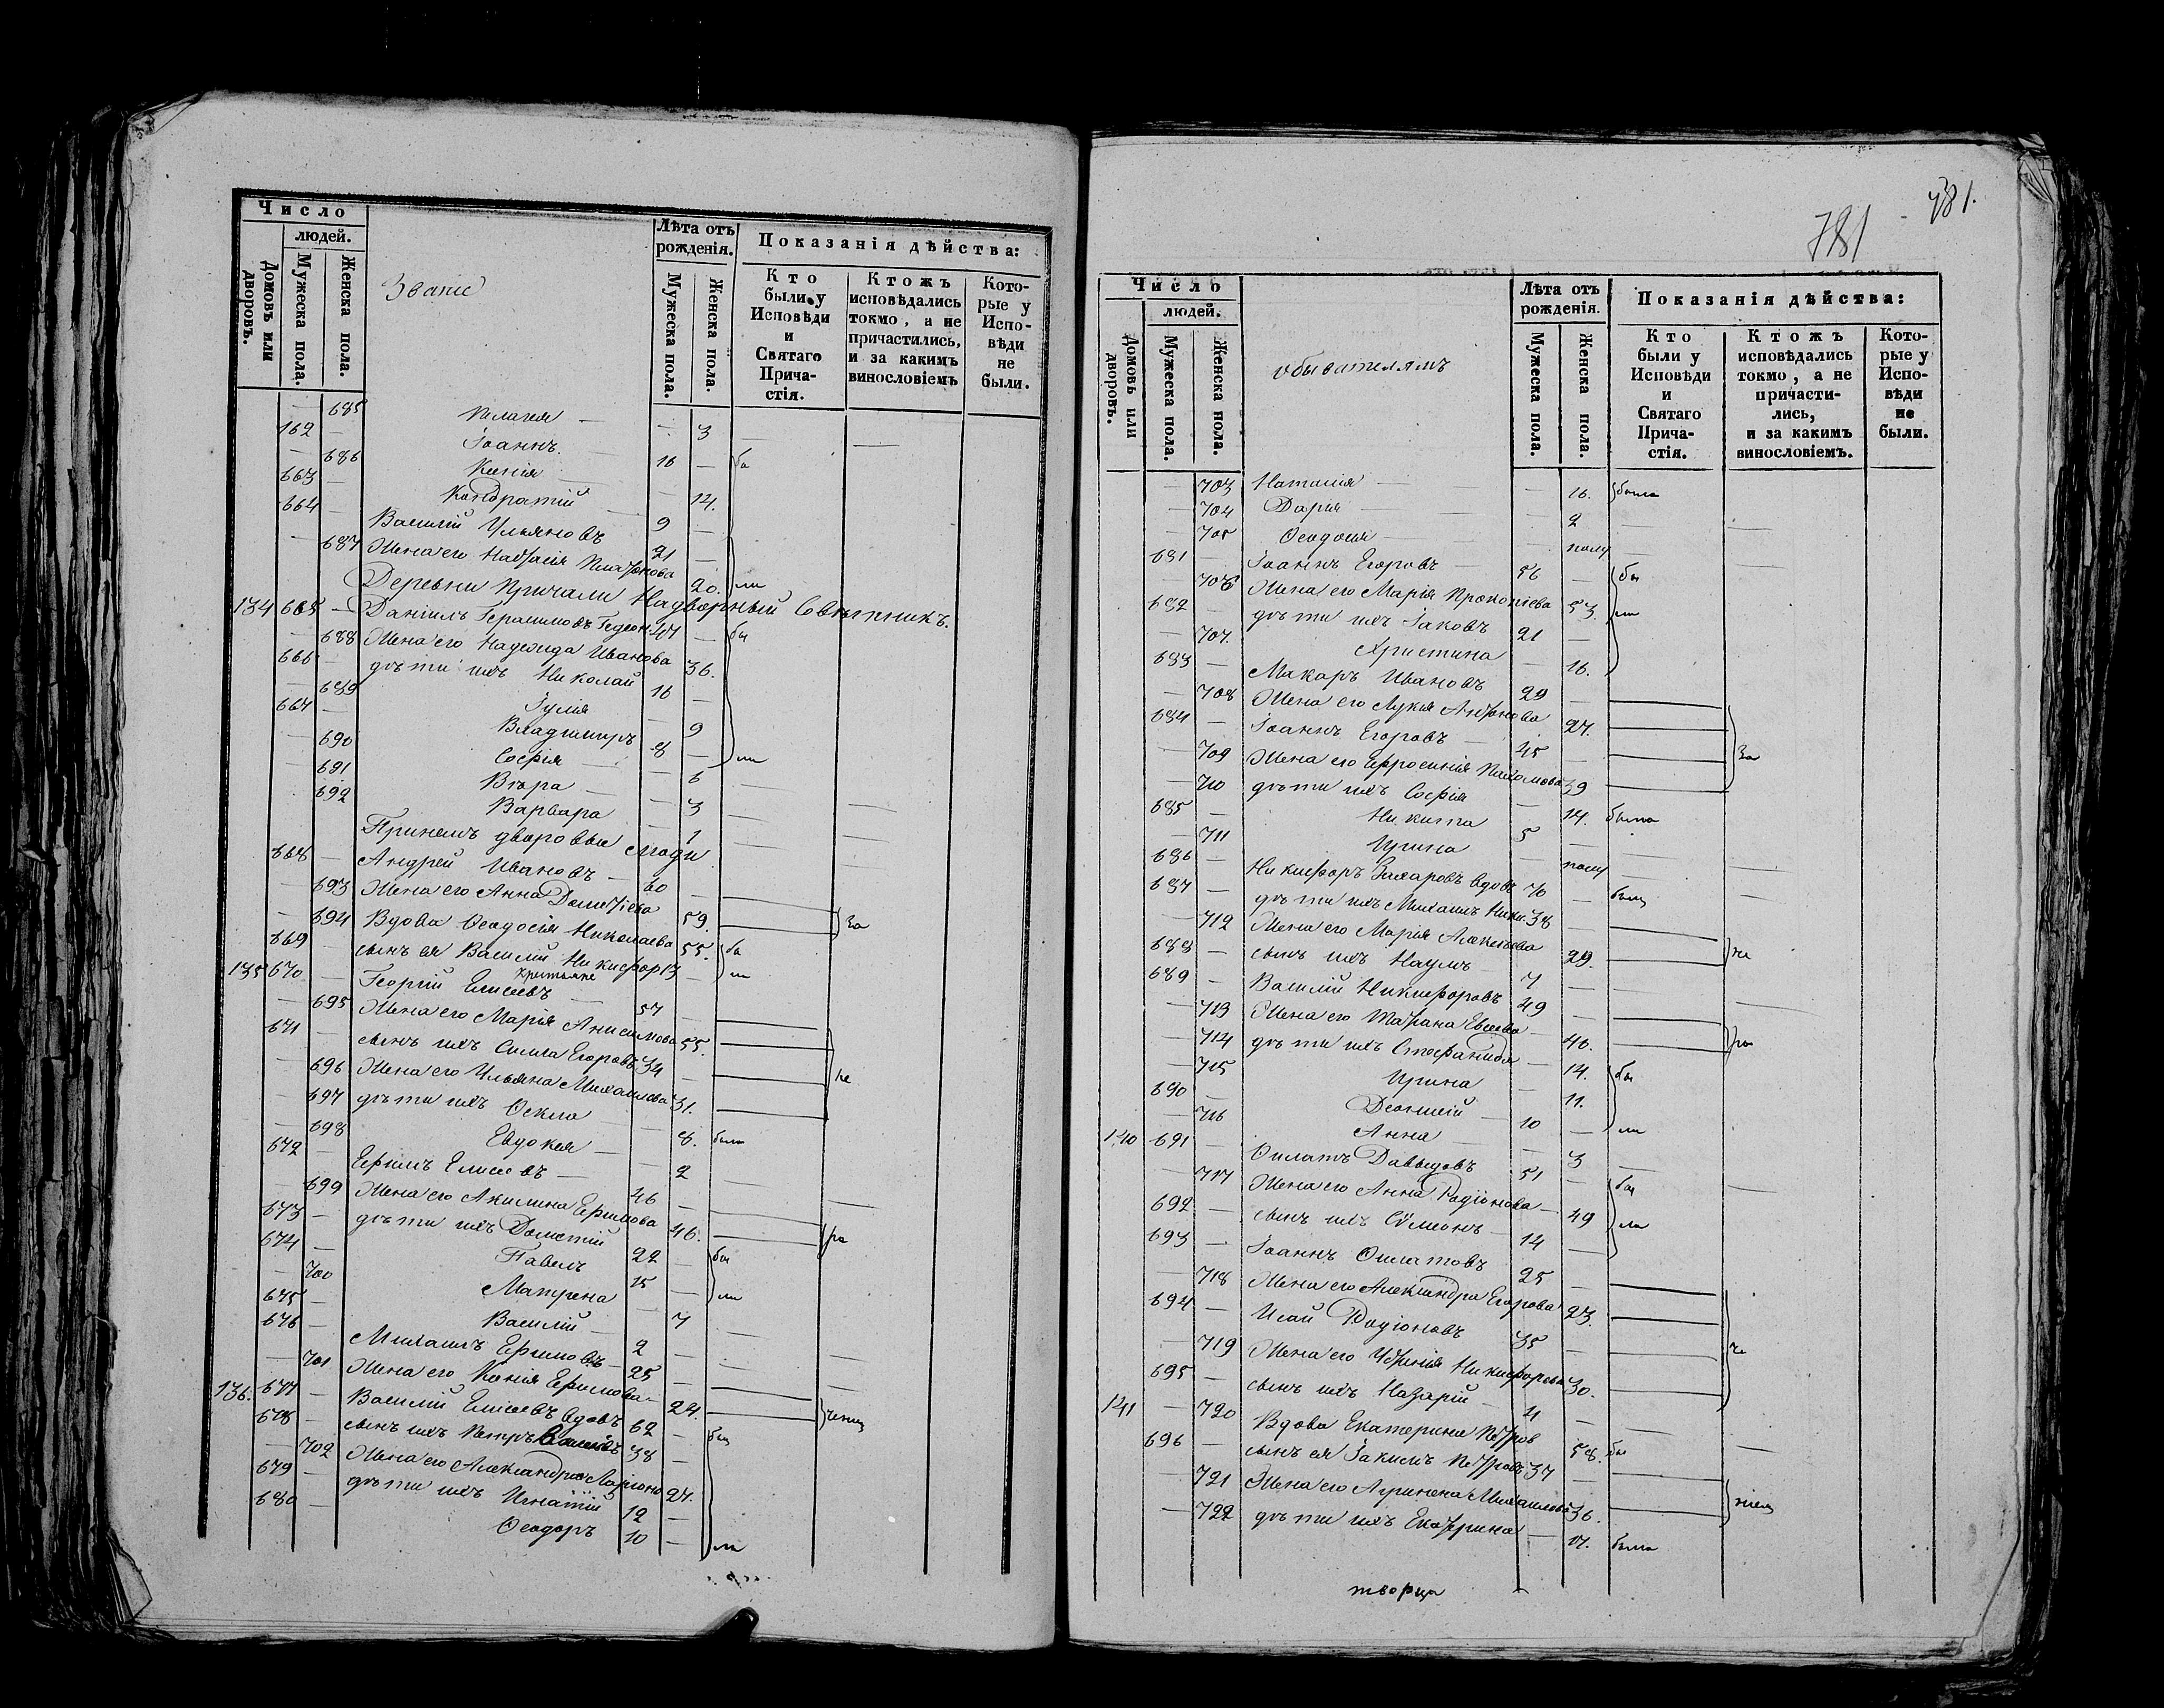 Число
людей.
Домовъ или дворовъ.
Мужеска пола.
Женска пола.
Званіе
Лѣта отъ рожденія.
Мужеска пола.
Женска пола.
Показанія дѣйства:
Кто были у Исповѣди и Святаго Прича-стія.
Ктожъ исповѣдались токмо, а не причастились, и за какимъ винословіемъ
Кото-рые у Испо-вѣди не были.
— 685 Пелагея — — 3
662 — Іоаннъ 16 — бы
— 686 Ксенія — 14.
663 — Кондратій 9 —
664 — Василій Ульяновъ 21 —
— 687 Жена его Настасія 20. ли
Деревни Причали Надворный Совѣтникъ.
134 665 — Даніилъ Герасимовъ 47 — бы
— 688 Жена его Надежда Иванова 36.
666 — дѣти ихъ Николай 16 —
— 689 Іулія — 9
667 — Владимиръ 8 — ли
— 690 Софія — 6
— 691 Вѣра — 3
— 692 Варвара — 1
При немъ дворовые люди
668 — Андрей Ивановъ 60 —
— 693 Жена его Анна Дометіева 59. за
— 694 Вдова Ѳеодосія Николаева 55. бы
669 — сынъ ея Василій Никифор 13 — ли
крестьяне
135 670 — Георгій Елисеевъ 57 —
— 695 Жена его Марія Анисимова 55.
671 — сынъ ихъ Симa Егоровъ 34 — не
— 696 Жена его Ульяна Михаилова 31.
— 697 дѣти ихъ Ѳекла — 8. была
— 698 Евдокея — 2
672 — Ефимъ Елисеевъ 46 —
— 699 Жена его Акилина Ефимова 46. ра
673 — дѣти ихъ Дометій 22 — бы
674 — Павелъ 15 —
— 700 Матрена — 7 ли
675 — Василій 2 —
676 — Михаилъ Ефимовъ 25 —
— 701 Жена его Ксенія Ефимова 24.
136. 677 — Василій Елисеевъ вдовъ 62 — бы
678 — сынъ ихъ Петръ 38 —
— 702 Жена его Александра Ларіоно 27.
679 — дѣти ихъ Игнатій 12 —
680 — Ѳеодоръ 10 — ли
781
781.
Число
людей.
Домовъ или дворовъ.
Мужеска пола.
Женска пола.
обывателямъ
Лѣта отъ рожденія.
Мужеска пола.
Женска пола.
Показанія дѣйства:
Кто были у Исповѣди и Святаго Прича-стія.
Ктожъ исповѣдались токмо, а не причасти-лись, и за какимъ винословіемъ.
Кото-рые у Испо-вѣди не были.
— 703 Наталія — 16. была
— 704 Дарія — 2
— 705 Ѳеодосія — полу
681 — Іоаннъ Егоровъ 56 — бы
— 706 Жена его Марія Прокопіева 53. ли
682 — дѣти ихъ Іаковъ 21 —
— 707. Христина — 16.
683 — Макаръ Ивановъ 29 —
— 708 Жена его Лукія Антонова 27.
684 — Іоаннъ Егоровъ 45 — за
— 709 Жена его Ефросинія Пахомова 39
— 710 дѣти ихъ Софія — 14. была
685 — Никита 5 —
— 711 Ирина — полу
686 — Никифоръ Захаровъ вдовъ 70 — былъ
687 — дѣти ихъ Михаилъ Ники. 38 —
— 712 Жена его Марія Алексіева 29. не
688 — сынъ ихъ Наумъ 7 —
689 — Василій Никифоровъ 49 —
— 713 Жена его Татіана Евсеева 46. ра
— 714 дѣти ихъ Стефанида — 14. бы
— 715 Ирина — 11.
690 — Діонисій 10 — ли
— 716 Анна — 3
140 691 Филатъ Давыдовъ 51 — бы
— 717 Жена его Анна Родіонова 49 ли
692 — сынъ ихъ Сѵмеонъ 14 —
693 — Іоаннъ Филатовъ 25 —
— 718 Жена его Александра Егорова 23.
694 — Исай Родіоновъ 35 — че
— 719 Жена его Никифорова 30.
695 — сынъ ихъ Назарій 4 —
141 — 720 Вдова Екатерина Петров 58. бы
696 — сынъ ея Іакимъ Петровъ 37 —
— 721 Жена его Агрипена Михаилова 36. ніем
— 722 дѣти ихъ Екатерина — 17. была
творца